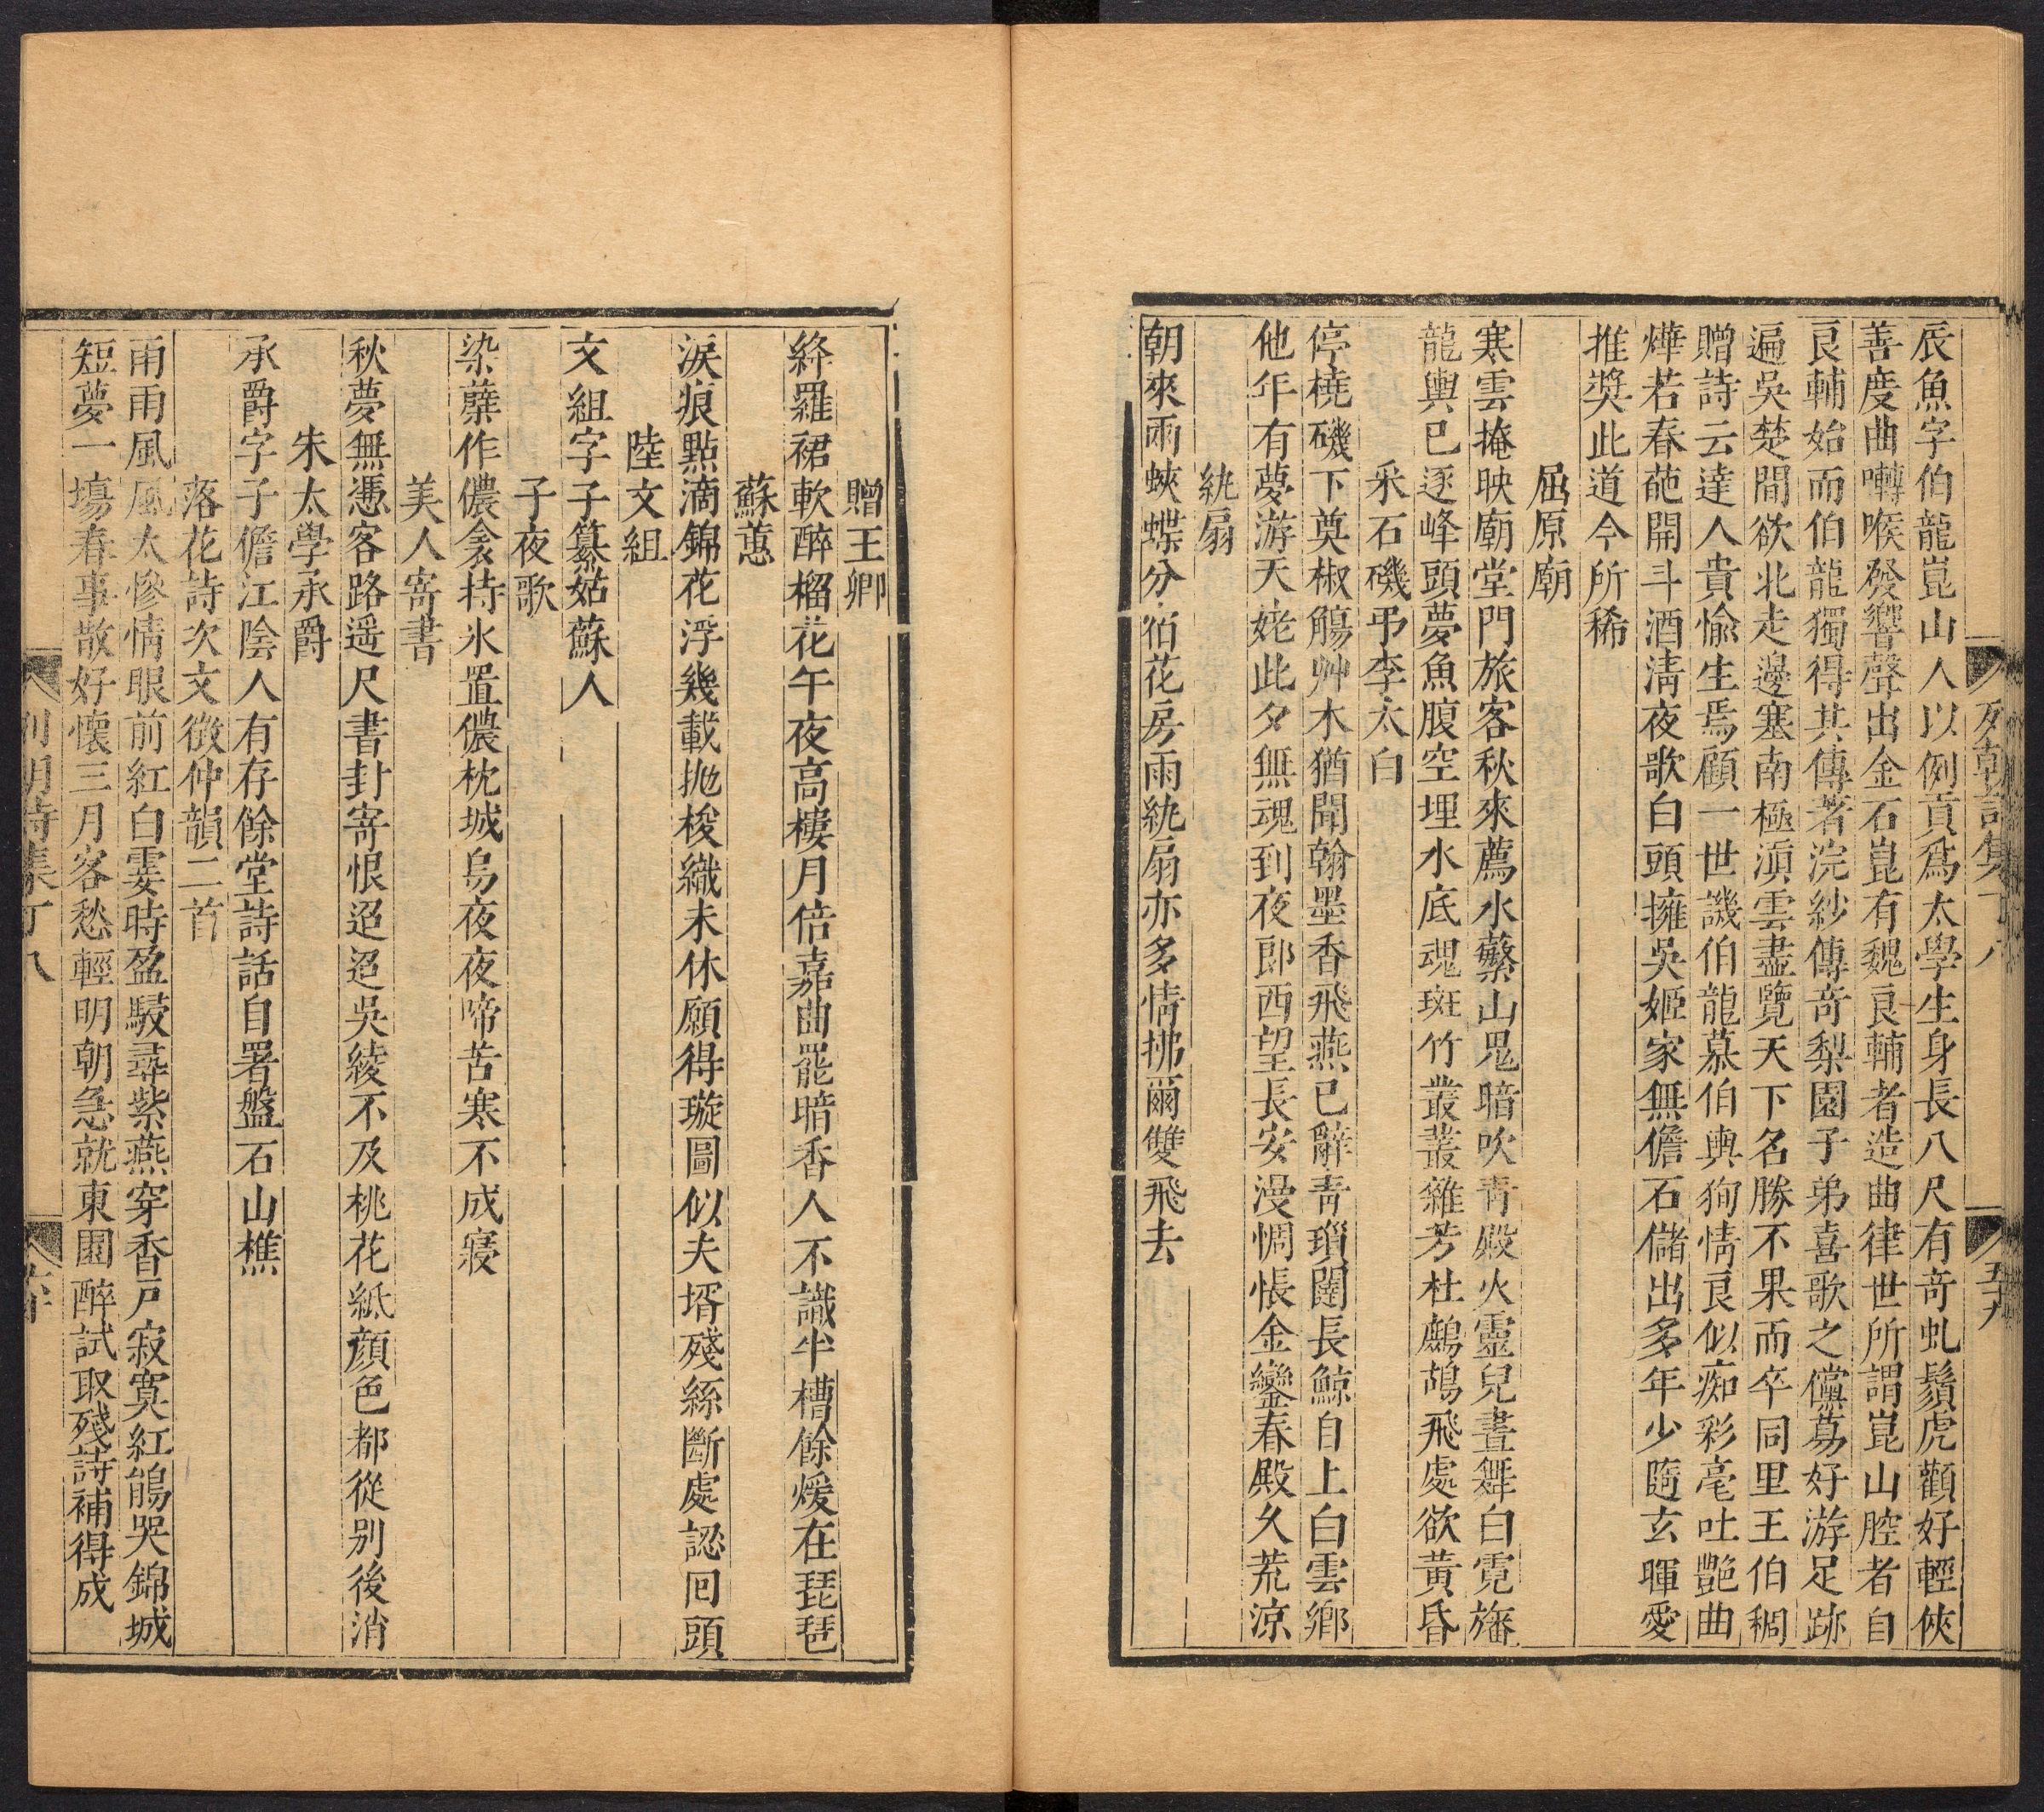 列朝詩集丁八
五十九
辰魚字伯龍崑山人以例貢爲太學生身長八尺有奇虬鬚虎顴好輕俠
善度曲囀喉發響聲出金石崑有魏良輔者造曲律世所謂崑山腔者自
良輔始而伯龍獨得其傳著浣紗傳奇梨園子弟喜歌之儻蕩好游足跡
遍吳楚間欲北走邊塞南極滇雲盡覽天下名勝不果而卒同里王伯稠
贈詩云達人貴愉生焉顧一世譏伯龍慕伯輿狥情良似痴彩毫吐艷曲
燁若春葩開斗酒清夜歌白頭擁吳姬家無儋石儲出多年少隨玄暉愛
推奬此道今所稀
屈原廟
寒雲掩映廟堂門旅客秋來薦水蘩山鬼暗吹青殿火靈兒晝舞白霓旛
龍輿已逐峰頭夢魚腹空埋水底魂斑竹叢叢雜芳杜鷓鴣飛處欲黃昏
采石磯弔李太白
停橈磯下奠椒觴艸木猶聞翰墨香飛燕已辭青瑣闥長鯨自上白雲鄉
他年有夢游天姥此夕無魂到夜郎西望長安漫惆悵金鑾春殿久荒凉
紈扇
朝來雨蛺蝶分宿花房雨紈扇亦多情拂爾雙飛去
贈王卿
絳羅裙軟醉榴花午夜高樓月倍嘉曲罷暗香人不識半槽餘煖在琵琶
蘇蕙
淚痕點滴錦花浮幾載拋梭織未休願得璇圖似夫壻殘絲斷處認回頭
陸文組
文組字子纂姑蘇人
子夜歌
染蘗作儂衾持氷置儂枕城烏夜夜啼苦寒不成寢
美人寄書
秋夢無憑客路遥尺書封寄恨迢迢吳綾不及桃花紙顏色都從別後消
朱太學承爵
承爵字子儋江陰人有存餘堂詩話自署盤石山樵
落花詩次文徵仲韻二首
雨雨風風太慘情眼前紅白霎時盈騣尋紫燕穿香戶寂寞紅鵑哭錦城
短夢一塲春事散好懷三月客愁輕明朝急就東園醉試取殘詩補得成
列朝詩集丁八
六十